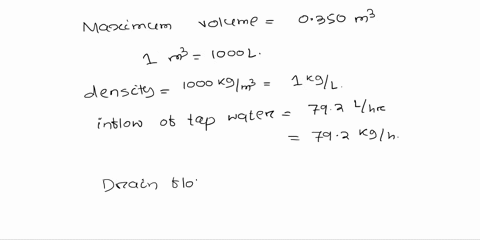 Maximum volume = 0.350 m³
1 m³ = 1000 L.
density = 1000 kg/m³ = 1 kg/L.
inflow of tap water = 79.2 L/hr
= 79.2 kg/h.
Drain flo